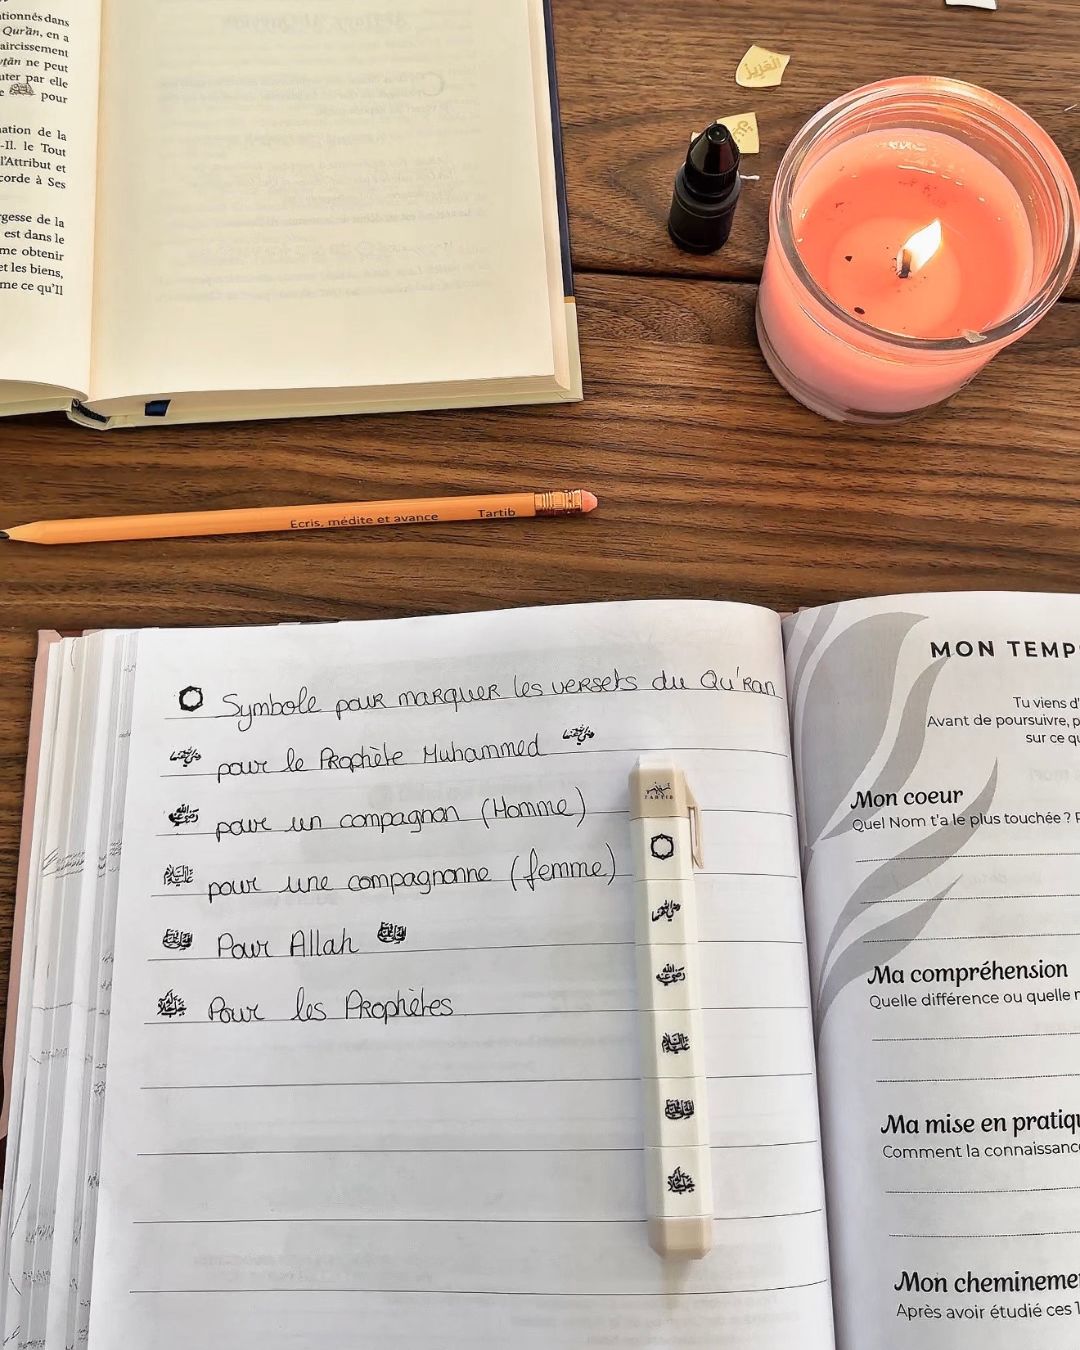 tionnés dans
Qur'ân, en a
aircissement
ne peut
uter par elle
pour
ation de la
-Il. le Tout
l'Attribut et
corde à Ses
gesse de la
est dans le
me obtenir
et les biens,
me ce qu'Il
العزيز
Ecris, médite et avance Tartib
Symbole pour marquer les versets du Qu'ran
pour le Prophète Muhammed
رضي الله عنه pour un compagnon (Homme)
عليه السلام pour une compagnonne (femme)
Pour Allah
Pour les Prophètes
TARTIB
رضي الله عنهما
رضي الله عنه
عليه السلام
MON TEMP
Tu viens d'
Avant de poursuivre, p
sur ce qu
Mon coeur
Quel Nom t'a le plus touchée ? P
Ma compréhension
Quelle différence ou quelle n
Ma mise en pratiqu
Comment la connaissanc
Mon chemineme
Après avoir étudié ces 1